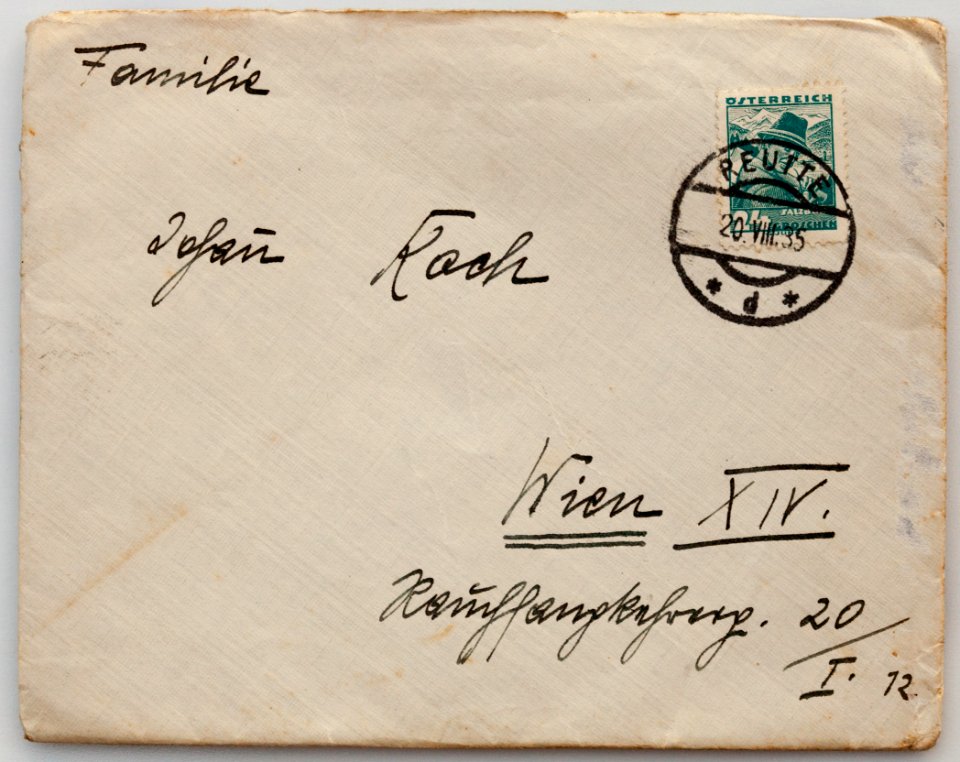 Familie
Johan̄ Koch
Wien XIV.
Rauchfangkehrerg. 20
I. 12
ÖSTERREICH
SALZB
24 GROSCHEN
REUTTE
20.VIII.35
* d *